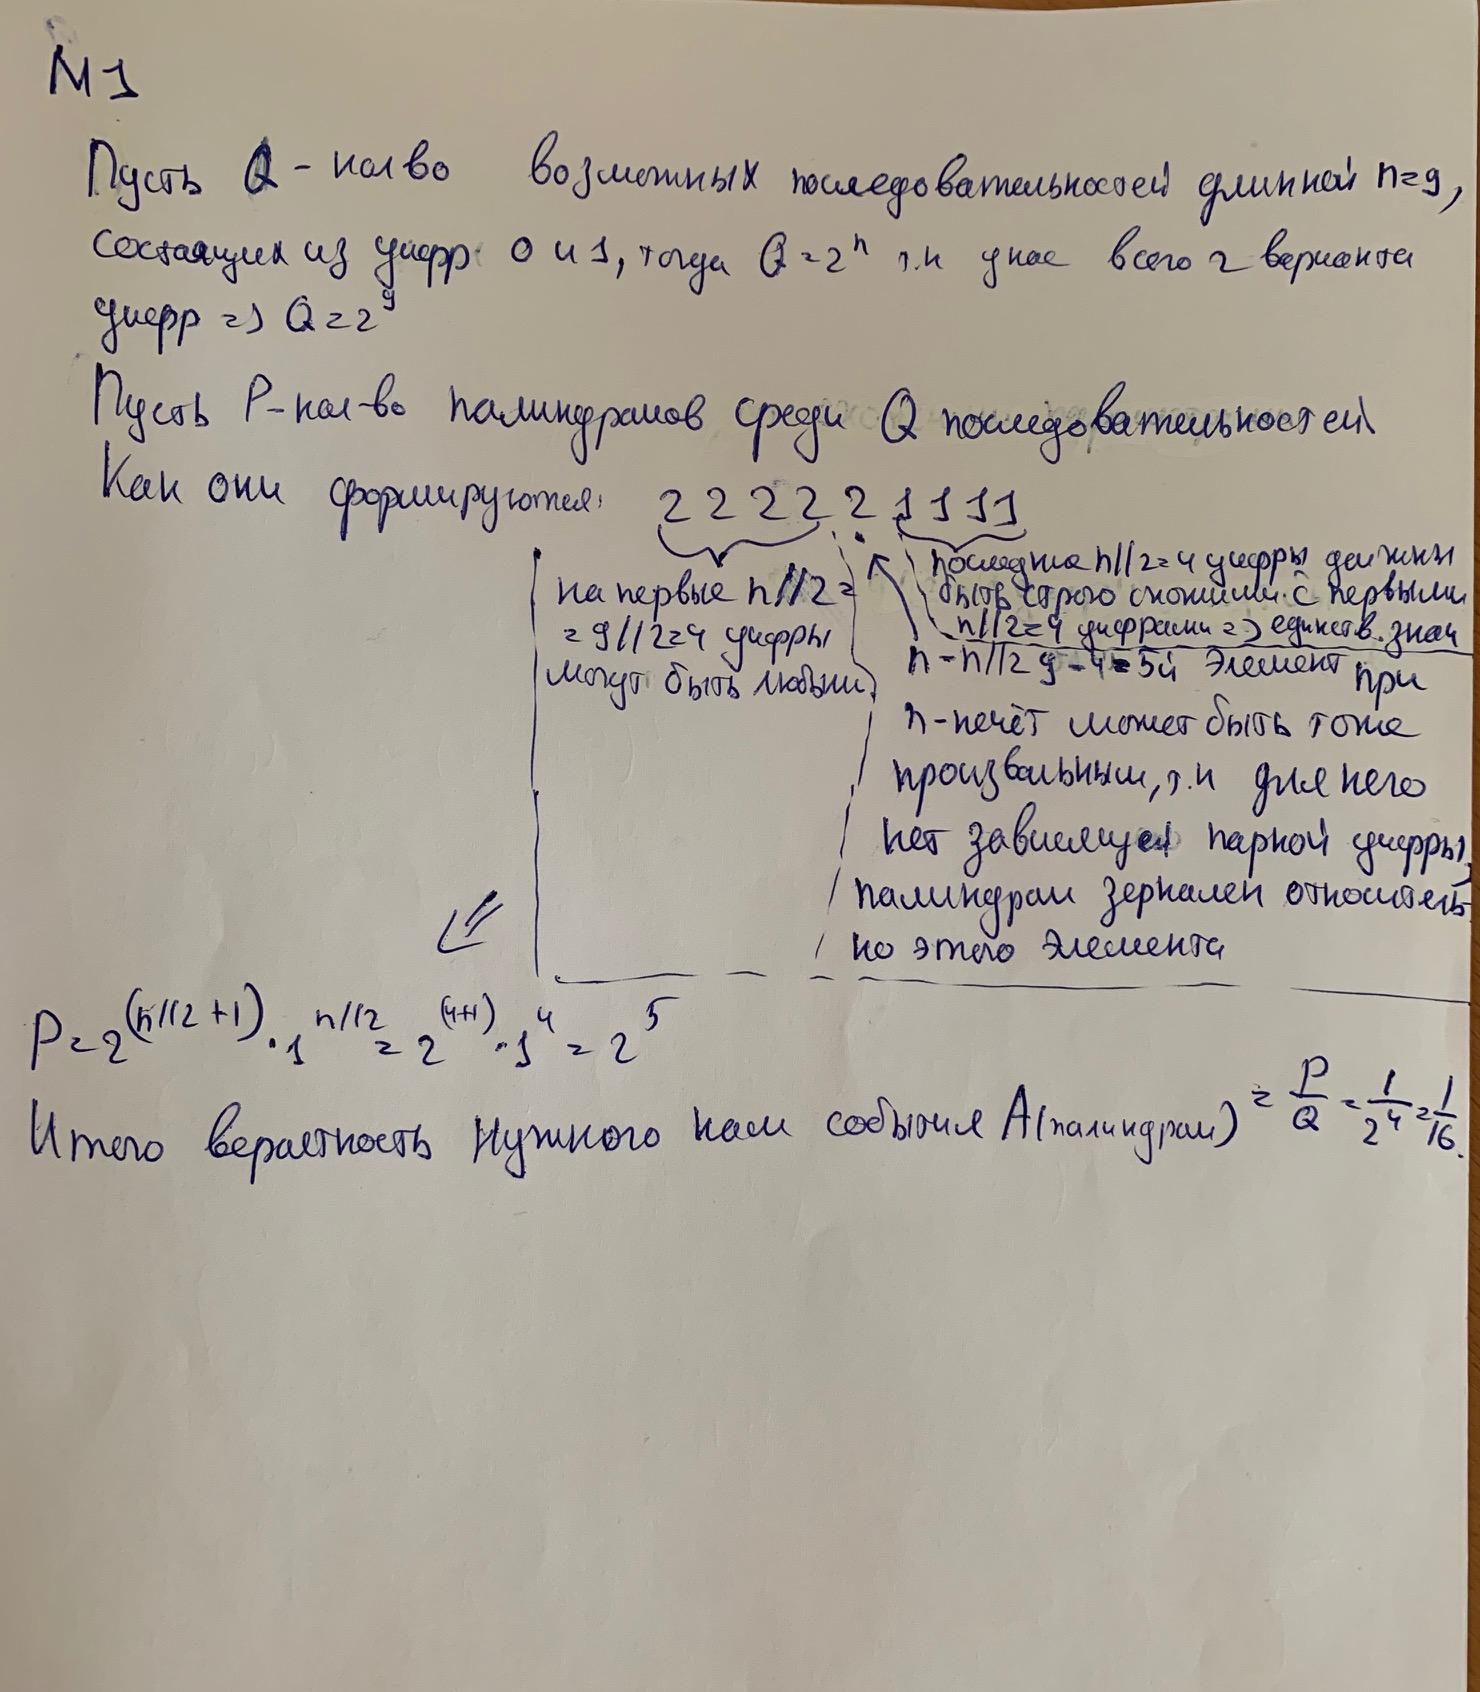 N1
Пусть Q - кол во возможных последовательностей длинной n=9,
состоящих из цифр 0 и 1, тогда Q = 2^n т.к у нас всего 2 варианта
цифр => Q = 2^9
Пусть P - кол-во палиндромов среди Q последовательностей.
Как они формируются: 2 2 2 2 2 1 1 1 1
на первые n//2 =
= 9//2=4 цифры
могут быть любыми
последние n//2=4 цифры должны
быть строго схожими с первыми
n//2=4 цифрами => единств. знач
n - n//2 9 - 4 = 5й элемент при
n-нечёт может быть тоже
произвальным, т.к для него
нет зависящей парной цифры,
палиндром зеркален относитель-
но этого элемента
P = 2^(n//2 +1) · 1^n//2 = 2^(4+1) · 1^4 = 2^5
Итого вероятность нужного нам события A(палиндром) = P/Q = 1/2^4 = 1/16.